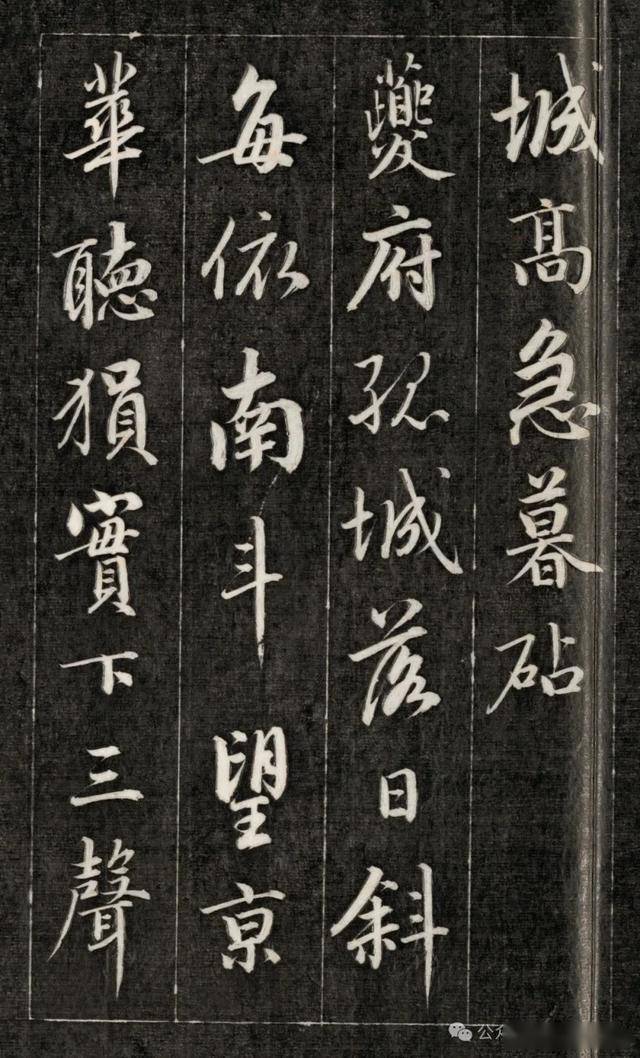 城高急暮砧
夔府孤城落日斜
每依南斗望京
華聽猿實下三聲
公众